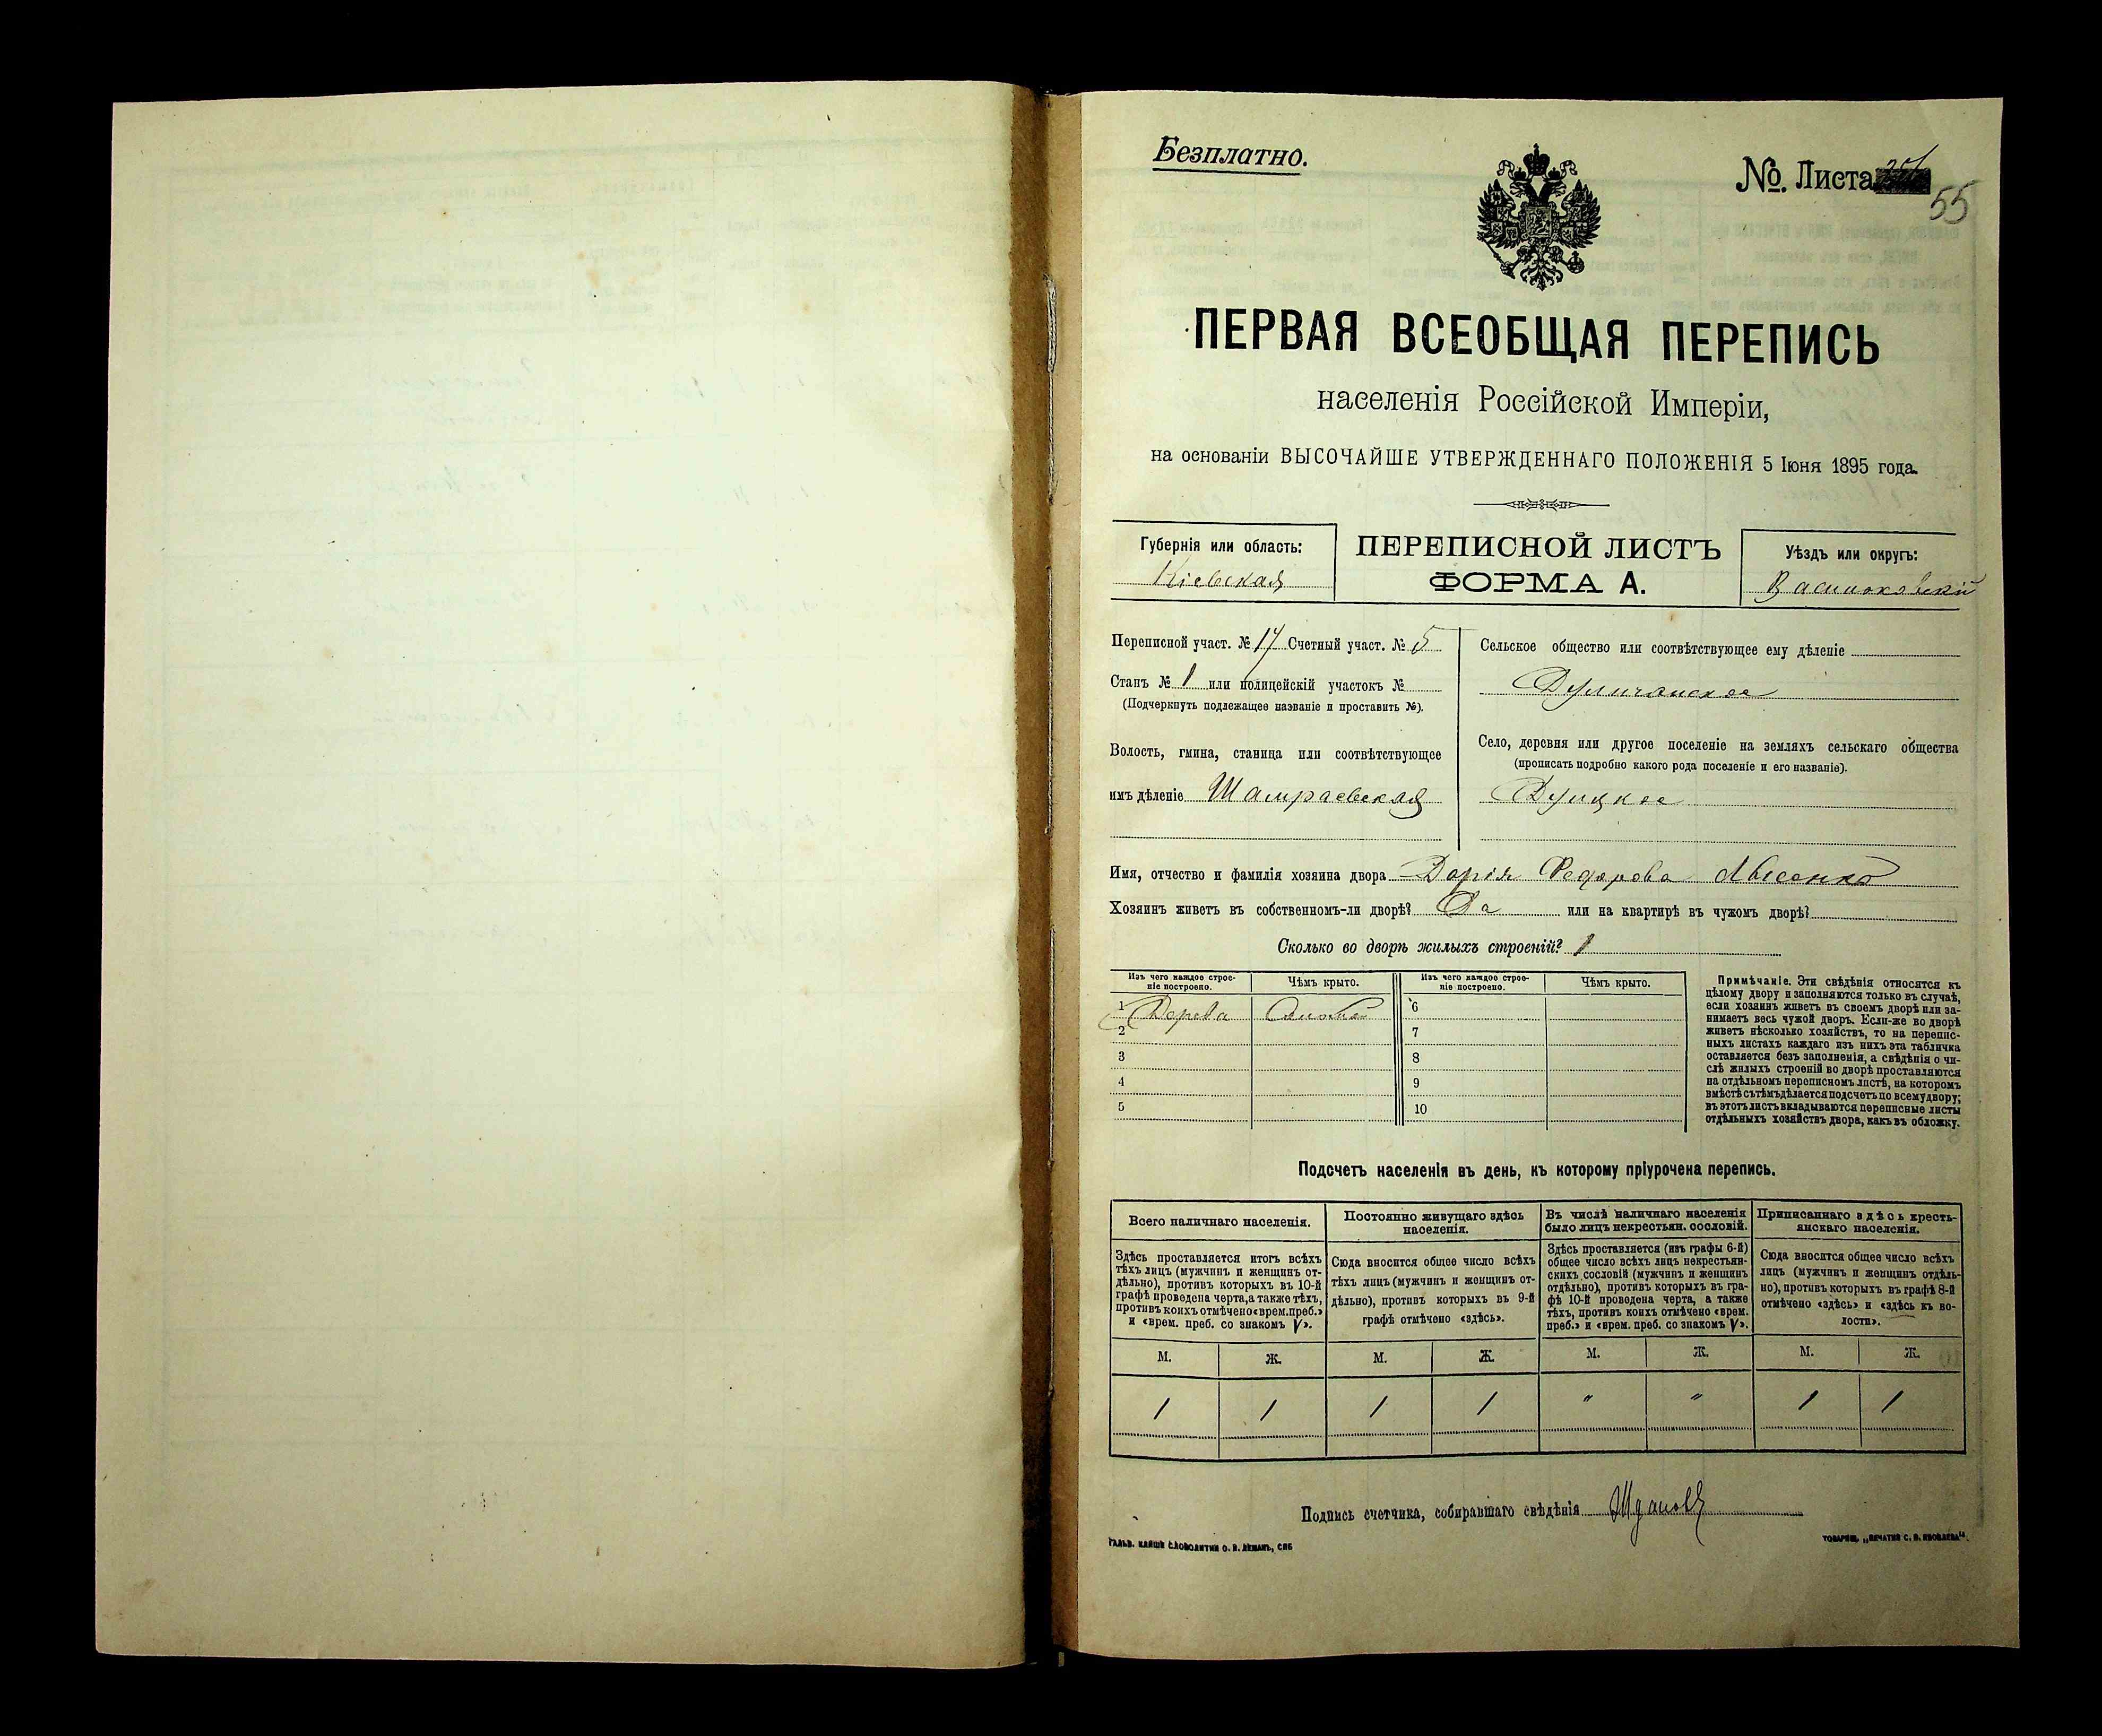 Безплатно.
№. Листа
55
ПЕРВАЯ ВСЕОБЩАЯ ПЕРЕПИСЬ
населенія Россійской Имперіи,
на основаніи ВЫСОЧАЙШЕ УТВЕРЖДЕННАГО ПОЛОЖЕНІЯ 5 Іюня 1895 года.
Губернія или область:
Кіевская
ПЕРЕПИСНОЙ ЛИСТЪ
ФОРМА А.
Уѣздъ или округъ:
Васильковскій
Переписной участ. № 17 Счетный участ. № 5
Станъ № 1 или полицейскій участокъ №
(Подчеркнуть подлежащее названіе и проставить №).
Волость, гмина, станица или соотвѣтствующее
имъ дѣленіе Шамраевская
Сельское общество или соотвѣтствующее ему дѣленіе
Село, деревня или другое поселеніе на земляхъ сельскаго общества
(прописать подробно какого рода поселеніе и его названіе).
Имя, отчество и фамилія хозяина двора Дарія Федорова
Хозяинъ живетъ въ собственномъ-ли дворѣ? Да или на квартирѣ въ чужомъ дворѣ?
Сколько во дворѣ жилыхъ строеній? 1
Изъ чего каждое строе-
ніе построено.
Чѣмъ крыто.
Изъ чего каждое строе-
ніе построено.
Чѣмъ крыто.
1 Дерева 6
2 7
3 8
4 9
5 10
Примѣчаніе. Эти свѣдѣнія относятся къ
цѣлому двору и заполняются только въ случаѣ,
если хозяинъ живетъ въ своемъ дворѣ или за-
нимаетъ весь чужой дворъ. Если-же во дворѣ
живетъ нѣсколько хозяйствъ, то на перепис-
ныхъ листахъ каждаго изъ нихъ эта табличка
оставляется безъ заполненія, а свѣдѣнія о чи-
слѣ жилыхъ строеній во дворѣ проставляются
на отдѣльномъ переписномъ листѣ, на которомъ
вмѣстѣ съ тѣмъ дѣлается подсчетъ по всему двору;
въ этотъ листъ вкладываются переписные листы
отдѣльныхъ хозяйствъ двора, какъ въ обложку.
Подсчетъ населенія въ день, къ которому пріурочена перепись.
Всего наличнаго населенія.
Здѣсь проставляется итогъ всѣхъ
тѣхъ лицъ (мужчинъ и женщинъ от-
дѣльно), противъ которыхъ въ 10-й
графѣ проведена черта, а также тѣхъ,
противъ коихъ отмѣчено «врем. преб.»
и «врем. преб. со знакомъ V».
Постоянно живущаго здѣсь
населенія.
Сюда вносится общее число всѣхъ
тѣхъ лицъ (мужчинъ и женщинъ от-
дѣльно), противъ которыхъ въ 9-й
графѣ отмѣчено «здѣсь».
Въ числѣ наличнаго населенія
было лицъ некрестьян. сословій.
Здѣсь проставляется (изъ графы 6-й)
общее число всѣхъ лицъ некрестьян-
скихъ сословій (мужчинъ и женщинъ
отдѣльно), противъ которыхъ въ гра-
фѣ 10-й проведена черта, а также
тѣхъ, противъ коихъ отмѣчено «врем.
преб.» и «врем. преб. со знакомъ V».
Приписаннаго здѣсь кресть-
янскаго населенія.
Сюда вносится общее число всѣхъ
лицъ (мужчинъ и женщинъ отдѣль-
но), противъ которыхъ въ графѣ 8-й
отмѣчено «здѣсь» и «здѣсь въ во-
лости».
М. Ж. М. Ж. М. Ж. М. Ж.
1 1 1 1 " " 1 1
Подпись счетчика, собиравшаго свѣдѣнія Ждановъ
ГАЛЬВ. КЛИШЕ СЛОВОЛИТНИ О. И. ЛЕМАНЪ, СПБ
ТОВАРИЩ. „ПЕЧАТНЯ С. П. ЯКОВЛЕВА".